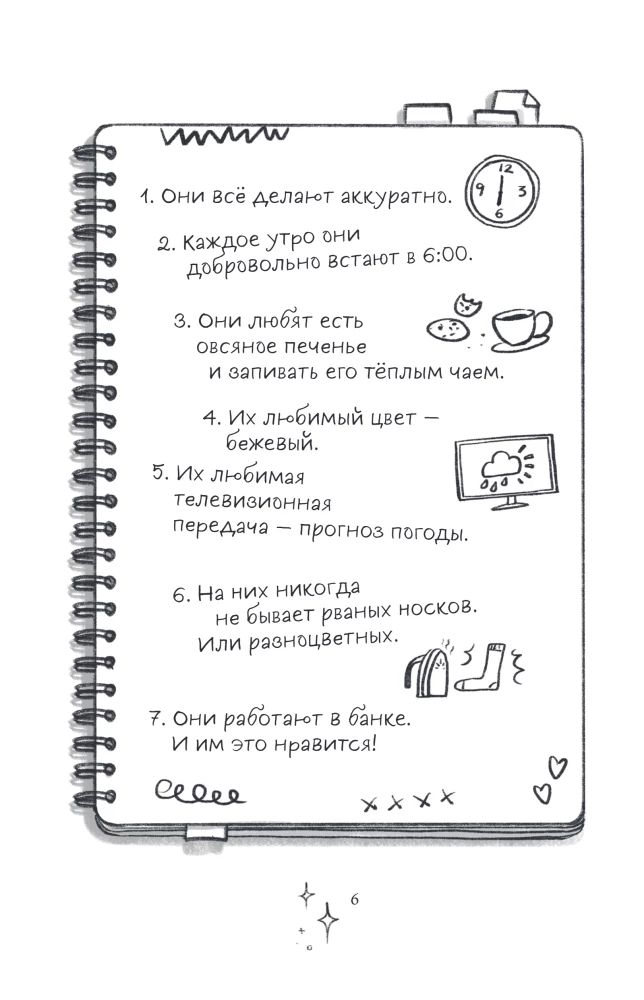 12
9 3
6
1. Они всё делают аккуратно.
2. Каждое утро они
добровольно встают в 6:00.
3. Они любят есть
овсяное печенье
и запивать его тёплым чаем.
4. Их любимый цвет —
бежевый.
5. Их любимая
телевизионная
передача — прогноз погоды.
6. На них никогда
не бывает рваных носков.
Или разноцветных.
7. Они работают в банке.
И им это нравится!
6